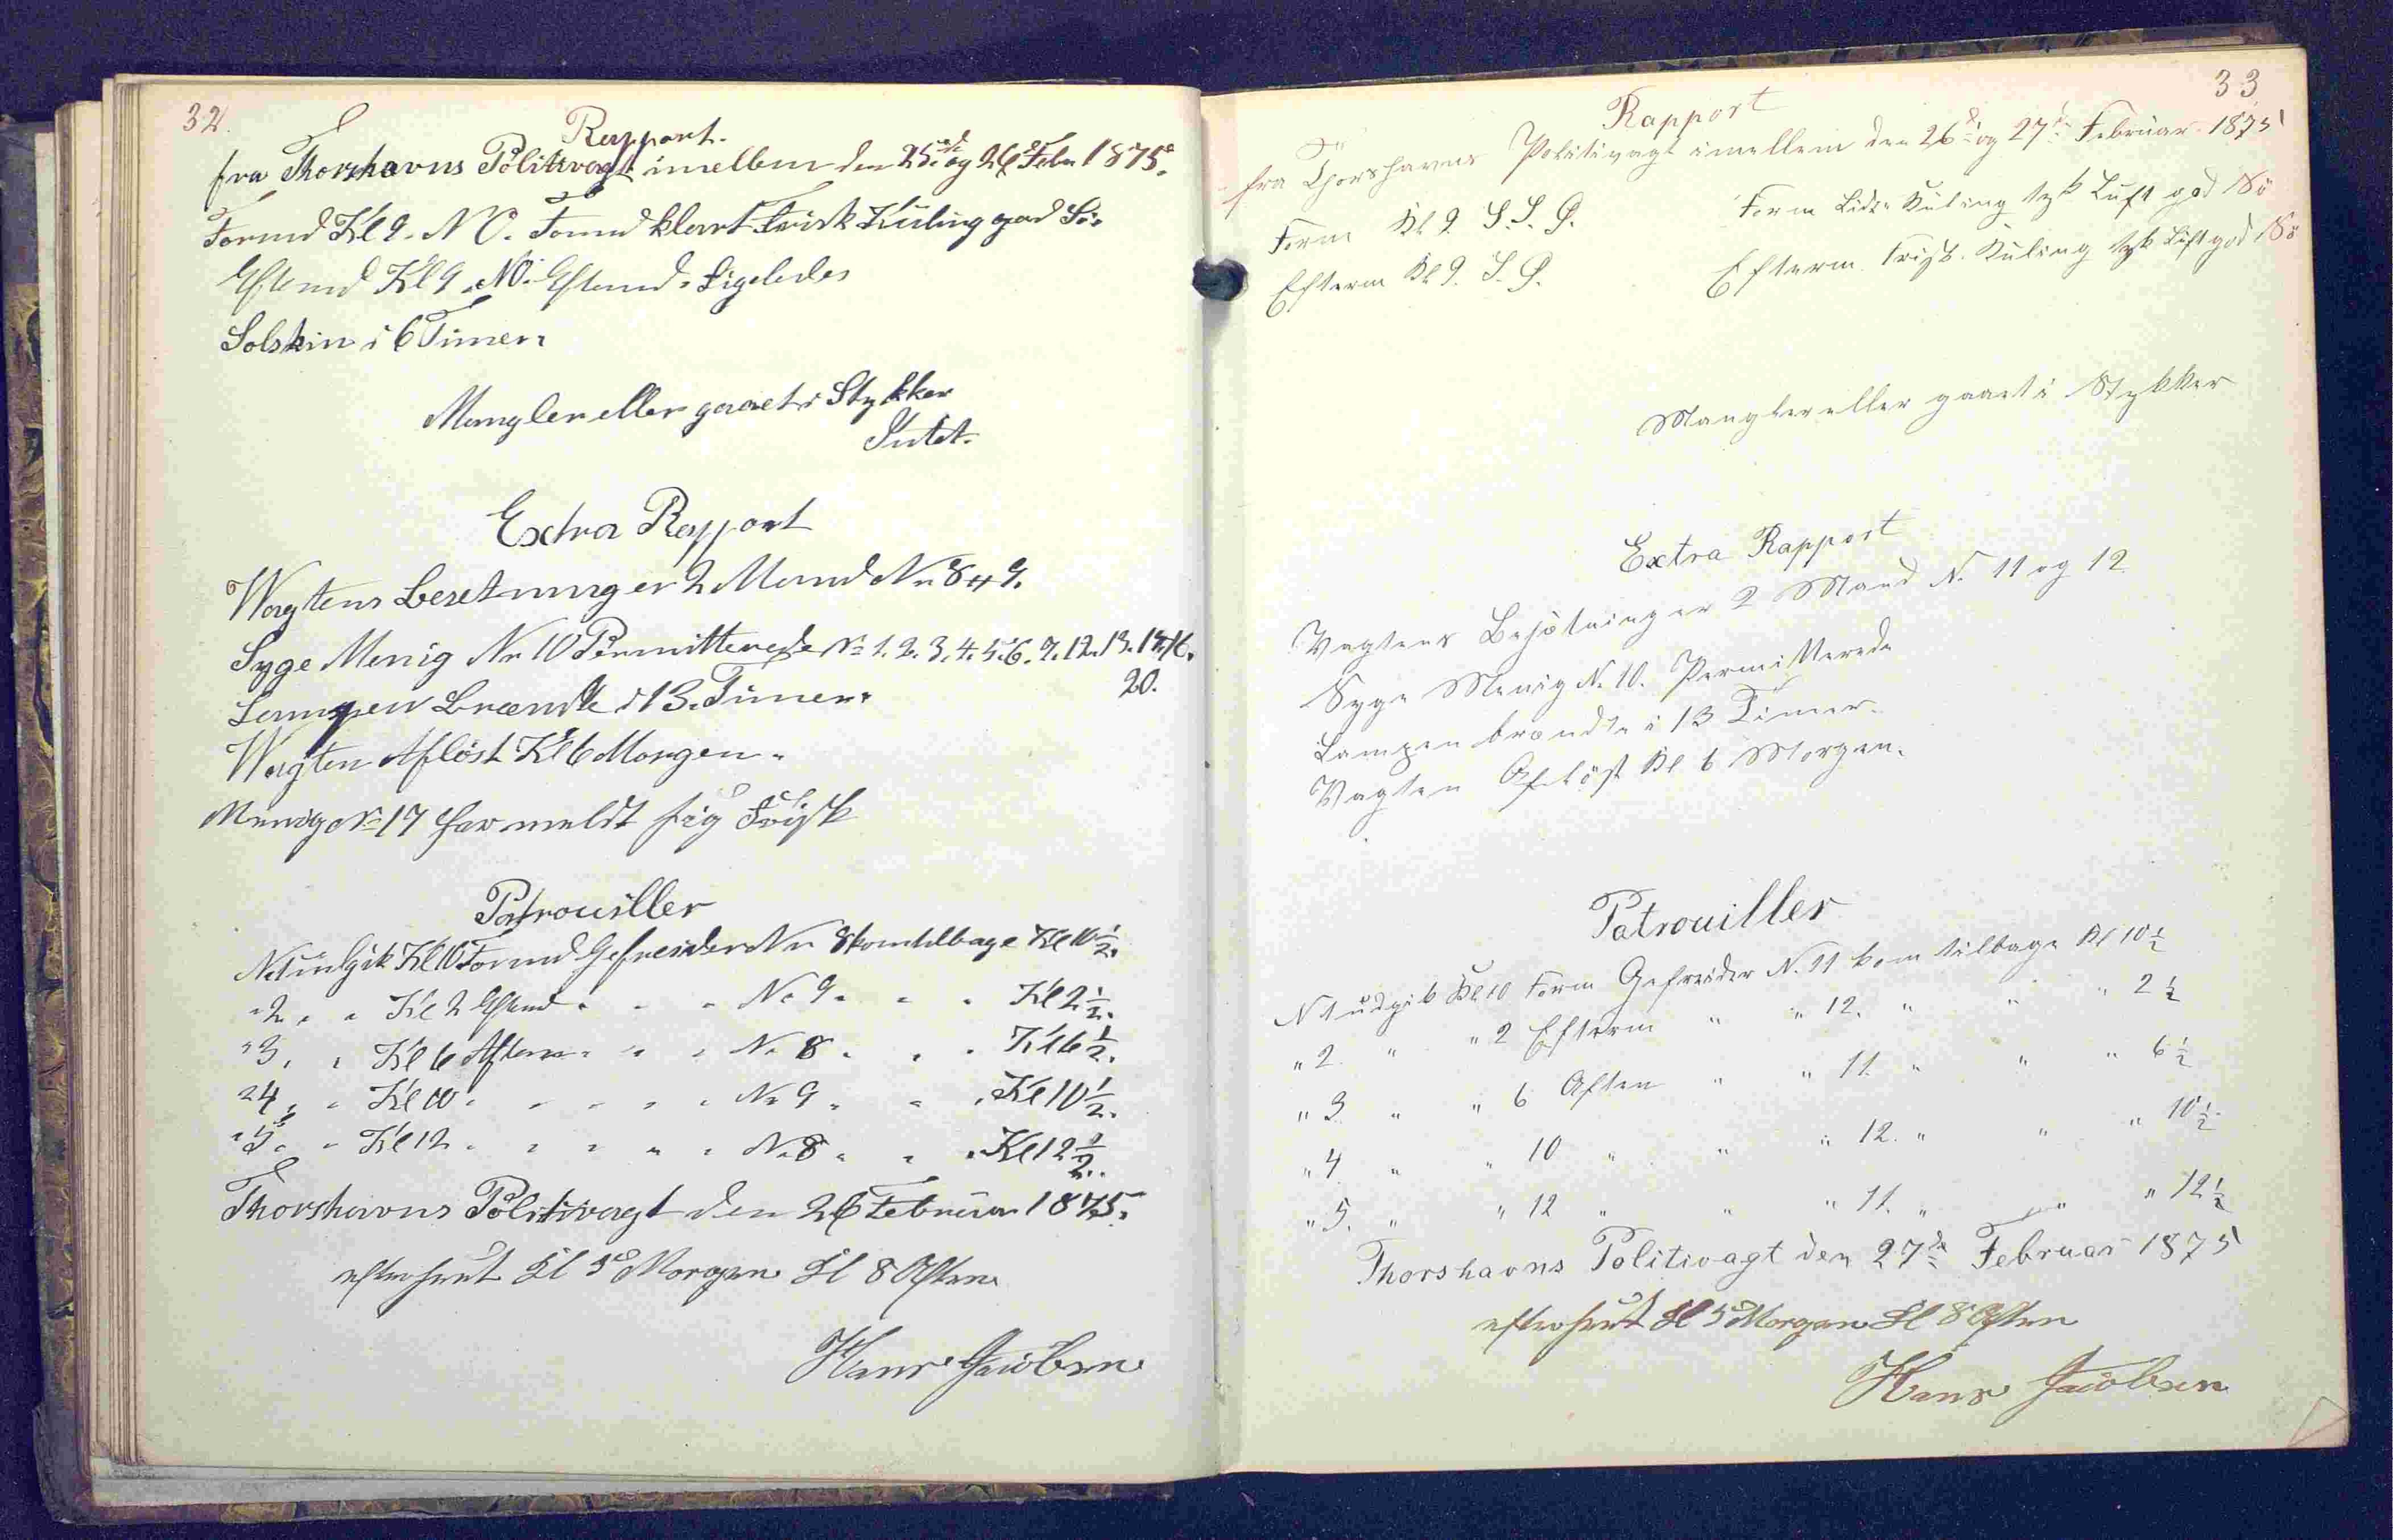 32.
Rapport.
fra Thorshavns Politivagt imellem den 25de og 26d Febr 1875.
Formd Kl 9. NO. Formd klart Frisk Kuling god Sö.
Eftemd Kl 9. NO. Eftemd. Ligeledes
Solskin i 6 Timer.
Mangler eller gaaet i Stykker
Intet.
Extra Rapport
Wagtens Besetning er 2 Mand Nr. 8 9.
Syge Menig Nr 10 Permitterede No 1. 2. 3. 4. 5. 6. 7. 12. 13. 14. 16.
20.
Lampen Brændte i 13. Timer.
Wagten Aflöst Kl 6 Morgen.
Menig No 17 har meldt sig Frisk
Patrouiller
No 1 udgik Kl 10 Formd Gefreider Nr 8 kom tilbage Kl 10 1/2.
" 2 " " Kl 2 Eftemd " " " No 9 " " " Kl 2 1/2.
" 3 " " Kl 6 Aften " " " No 8 " " " Kl 6 1/2.
" 4 " " Kl 10 " " " " " No 9 " " " Kl 10 1/2.
" 5 " " Kl 12 " " " " " No 8 " " " Kl 12 1/2.
Thorshavns Politivagt den 26 Februar 1875.
efterseet Kl 5 Morgen Kl 8 Aften
Hans Jacobsen
33
Rapport
fra Thorshavns Politivagt imellem den 26d og 27d Februar 1875
Form Kl 9. S. S. O. Form Lidte Kuling tyk Luft god Sö
Efterm Kl 9. S. O. Efterm Frisk Kuling tyk Luft god Sö
Mangler eller gaaet i Stykker
Extra Rapport
Vagtens Besötning er 2 Mand N. 11 og 12
Syge Menig N. 10. Permitterede
Lampen brændte i 13 Timer.
Vagten Aflöst Kl 6 Morgen.
Patrouiller
N 1 udgik Kl 10 Form Gefreider N. 11 kom tilbage Kl 10 1/2
" 2 " " 2 Efterm " " 12. " " " 2 1/2
" 3 " " 6 Aften " " 11 " " " 6 1/2
" 4 " " 10 " " " 12. " " " 10 1/2
" 5. " " 12 " " " 11. " " " 12 1/2
Thorshavns Politivagt den 27de Februar 1875
efterseet Kl 5 Morgen Kl 8 Aften
Hans Jacobsen